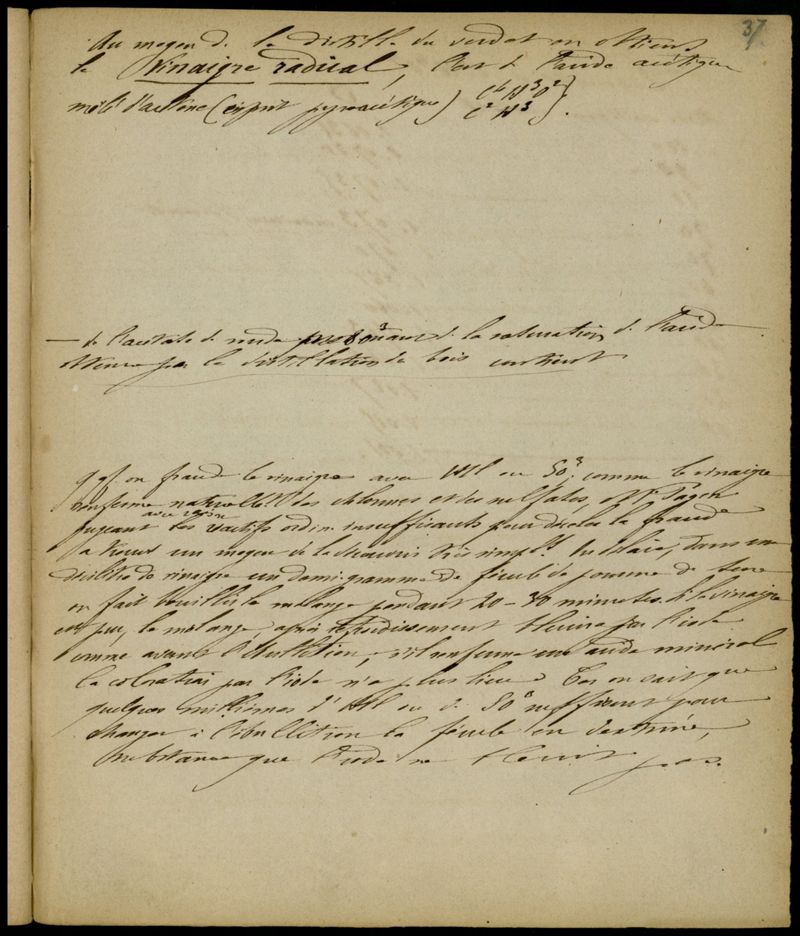 37
Au moyen d. la distill. du verdet on obtient
le Vinaigre radical, c'est d. l'acide acétique
mêlé d'acétone (esprit pyroacétique) C4 H3 O2 }
C2 H3 }.
— de l'acétate de soude provenant d. la saturation d. l'acide
obtenu par la distillation du bois contient
qqf. on fraude le vinaigre avec HCl ou SO3. comme le vinaigre
renferme naturellt des chlorures et des sulfates, Mr Payen
avec raison
jugeant les réactifs ordin. insuffisants pour déceler la fraude
a trouvé un moyen de la découvrir très simple. On délaie, dans un
décilitre de vinaigre un demi-gramme de fécule de pomme de terre
on fait bouillir le mélange pendant 20-30 minutes. Si le vinaigre
est pur, le mélange, après refroidissement bleuira par l'iode
comme avant l'ébullition; s'il renferme un acide minéral
la coloration par l'iode n'a plus lieu. Car on sait que
quelques millièmes d'HCl ou d. SO3 suffisent pour
changer à l'ébullition la fécule en dextrine,
substance que l'iode ne bleuit pas.